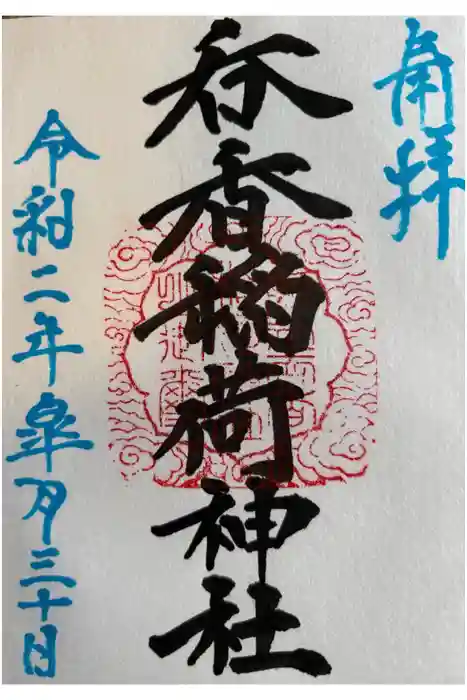 奉拝
呑香稲荷神社
令和二年皐月三十日